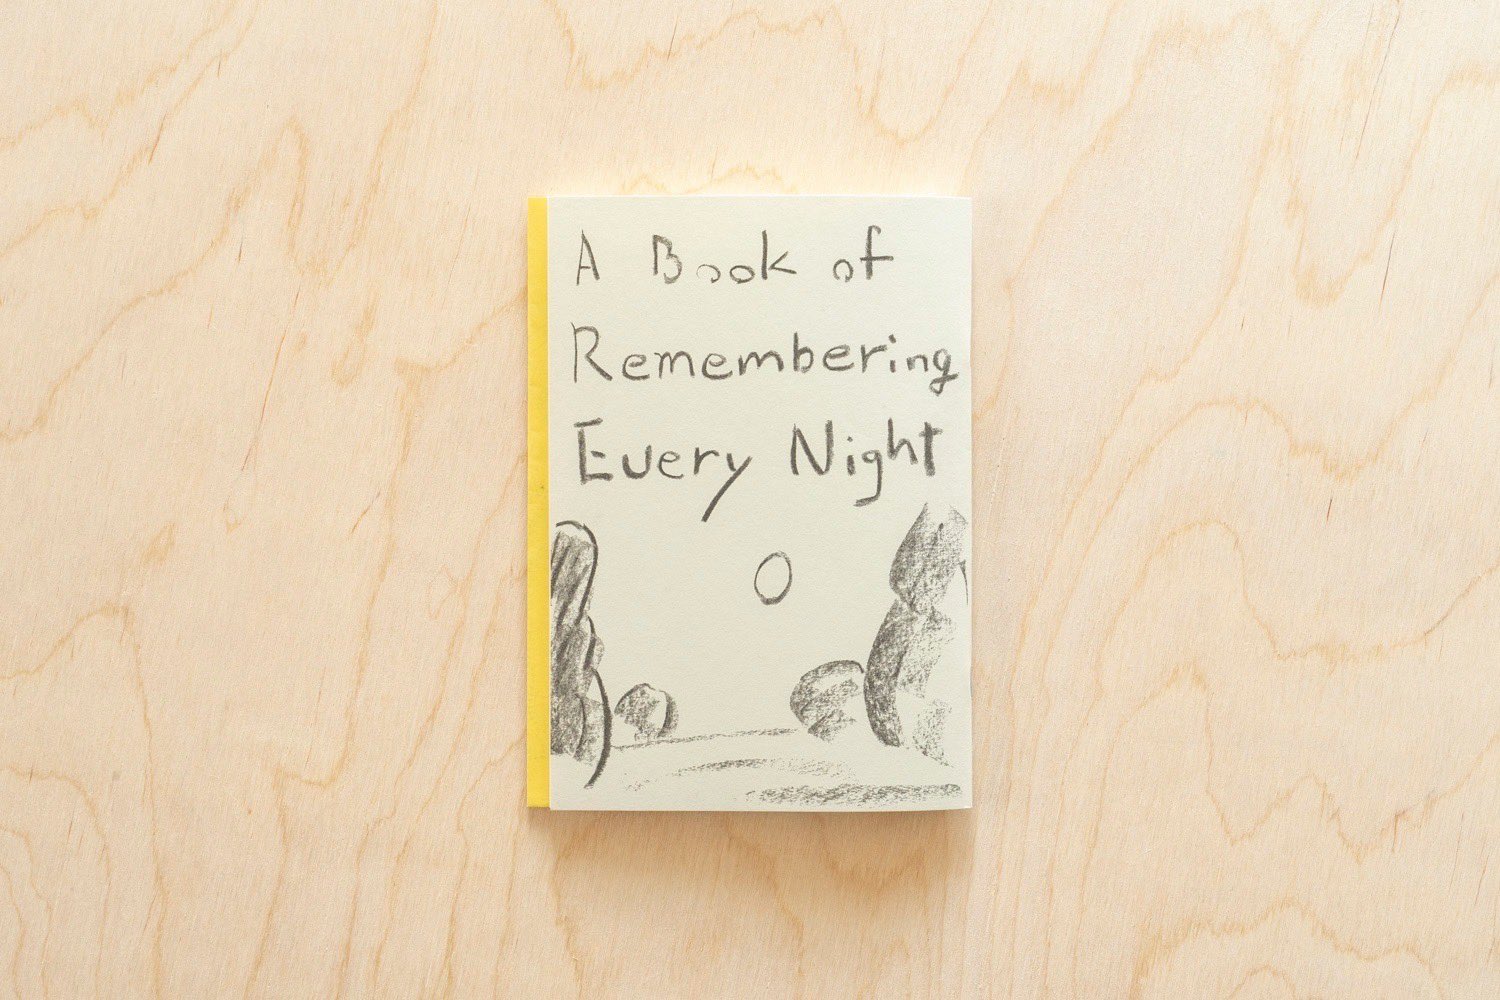 A Book of
Remembering
Every Night